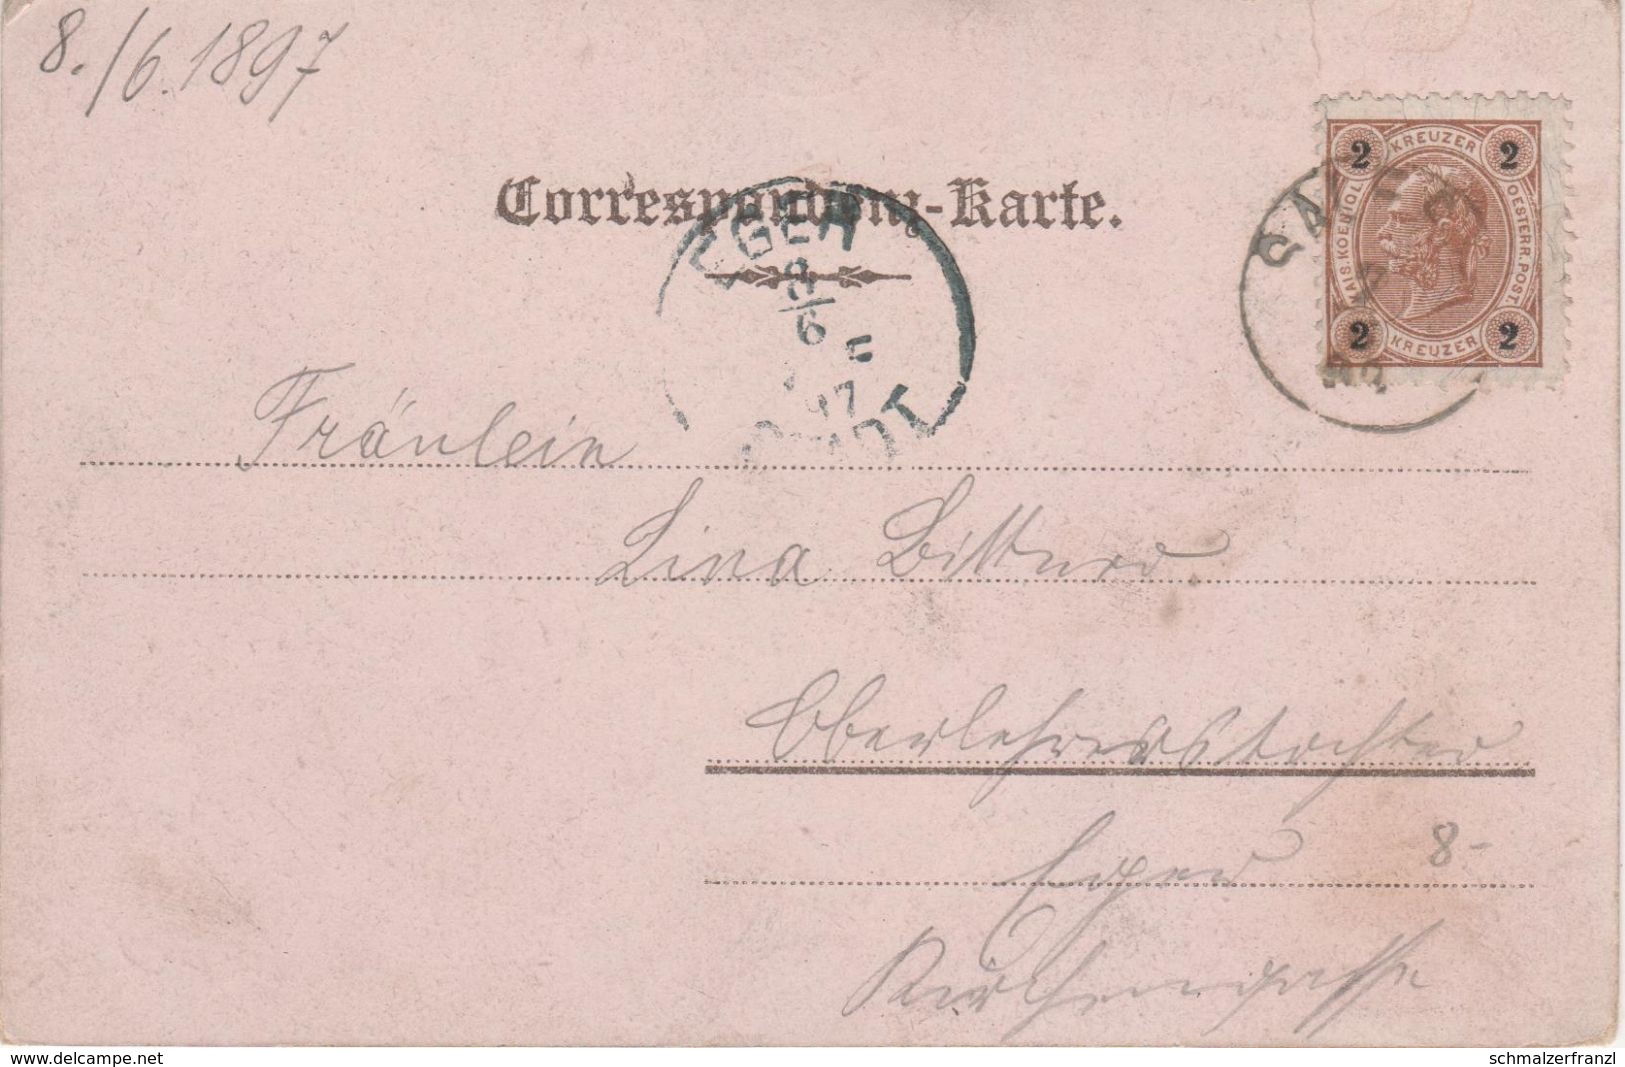 8./6.1897
Correspondenz-Karte.
2 KREUZER 2
KAIS. KOENIGL. OESTERR. POST.
2 KREUZER 2
EGER
8
6
97
STADT
Fräulein
Lina Bittner
Oberlehrerstochter
Eger
8-
Kirchengasse
www.delcampe.net
schmalzerfranzl